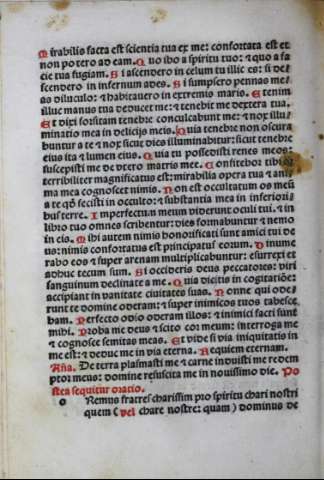 Mirabilis facta est scientia tua ex me: confortata est et
non potero ad eam. Quo ibo a spiritu tuo: et quo a fa
cie tua fugiam. Si ascendero in celum tu illic es: si de
scendero in infernum ades. Si sumpsero pennas me
as diluculo: et habitauero in extremis maris. Etenim
illuc manus tua deducet me: et tenebit me dextera tua.
Et dixi forsitam tenebre conculcabunt me: et nox illu
minatio mea in delicijs meis. Quia tenebre non obscura
buntur a te et nox sicut dies illuminabitur: sicut tenebre
eius ita et lumen eius. Quia tu possedisti renes meos:
suscepisti me de vtero matris mee. Confitebor tibi
terribiliter magnificatus est: mirabilia opera tua et ani
ma mea cognoscet nimis. Non est occultatum os meum
a te qd fecisti in occulto: et substantia mea in inferiori
bus terre. Imperfectum meum viderunt oculi tui. et in
libro tuo omnes scribentur: dies formabuntur et nemo
in eis. Mihi autem nimis honorificati sunt amici tui de
us: nimis confortatus est principatus eorum. Dinume
rabo eos et super arenam multiplicabuntur: exurrexi et
adhuc tecum sum. Si occideris deus peccatores: viri
sanguinum declinate a me. Quia dicitis in cogitatiōe:
accipiant in vanitate ciuitates suas. Nonne qui ode
runt te domine oderam: et super inimicos tuos tabesce
bam. Perfecto odio oderam illos: et inimici facti sunt
mihi. Proba me deus et scito cor meum: interroga me
et cognosce semitas meas. Et vide si via iniquitatis in
me est: et deduc me in via eterna. Requiem eternam.
Aña. De terra plasmasti me et carne induisti me redem
ptor meus: domine resuscita me in nouissimo die. Po
stea sequitur oratio.
o Remus fratres charissimi pro spiritu chari nostri
quem (vel chare nostre: quam) dominus de